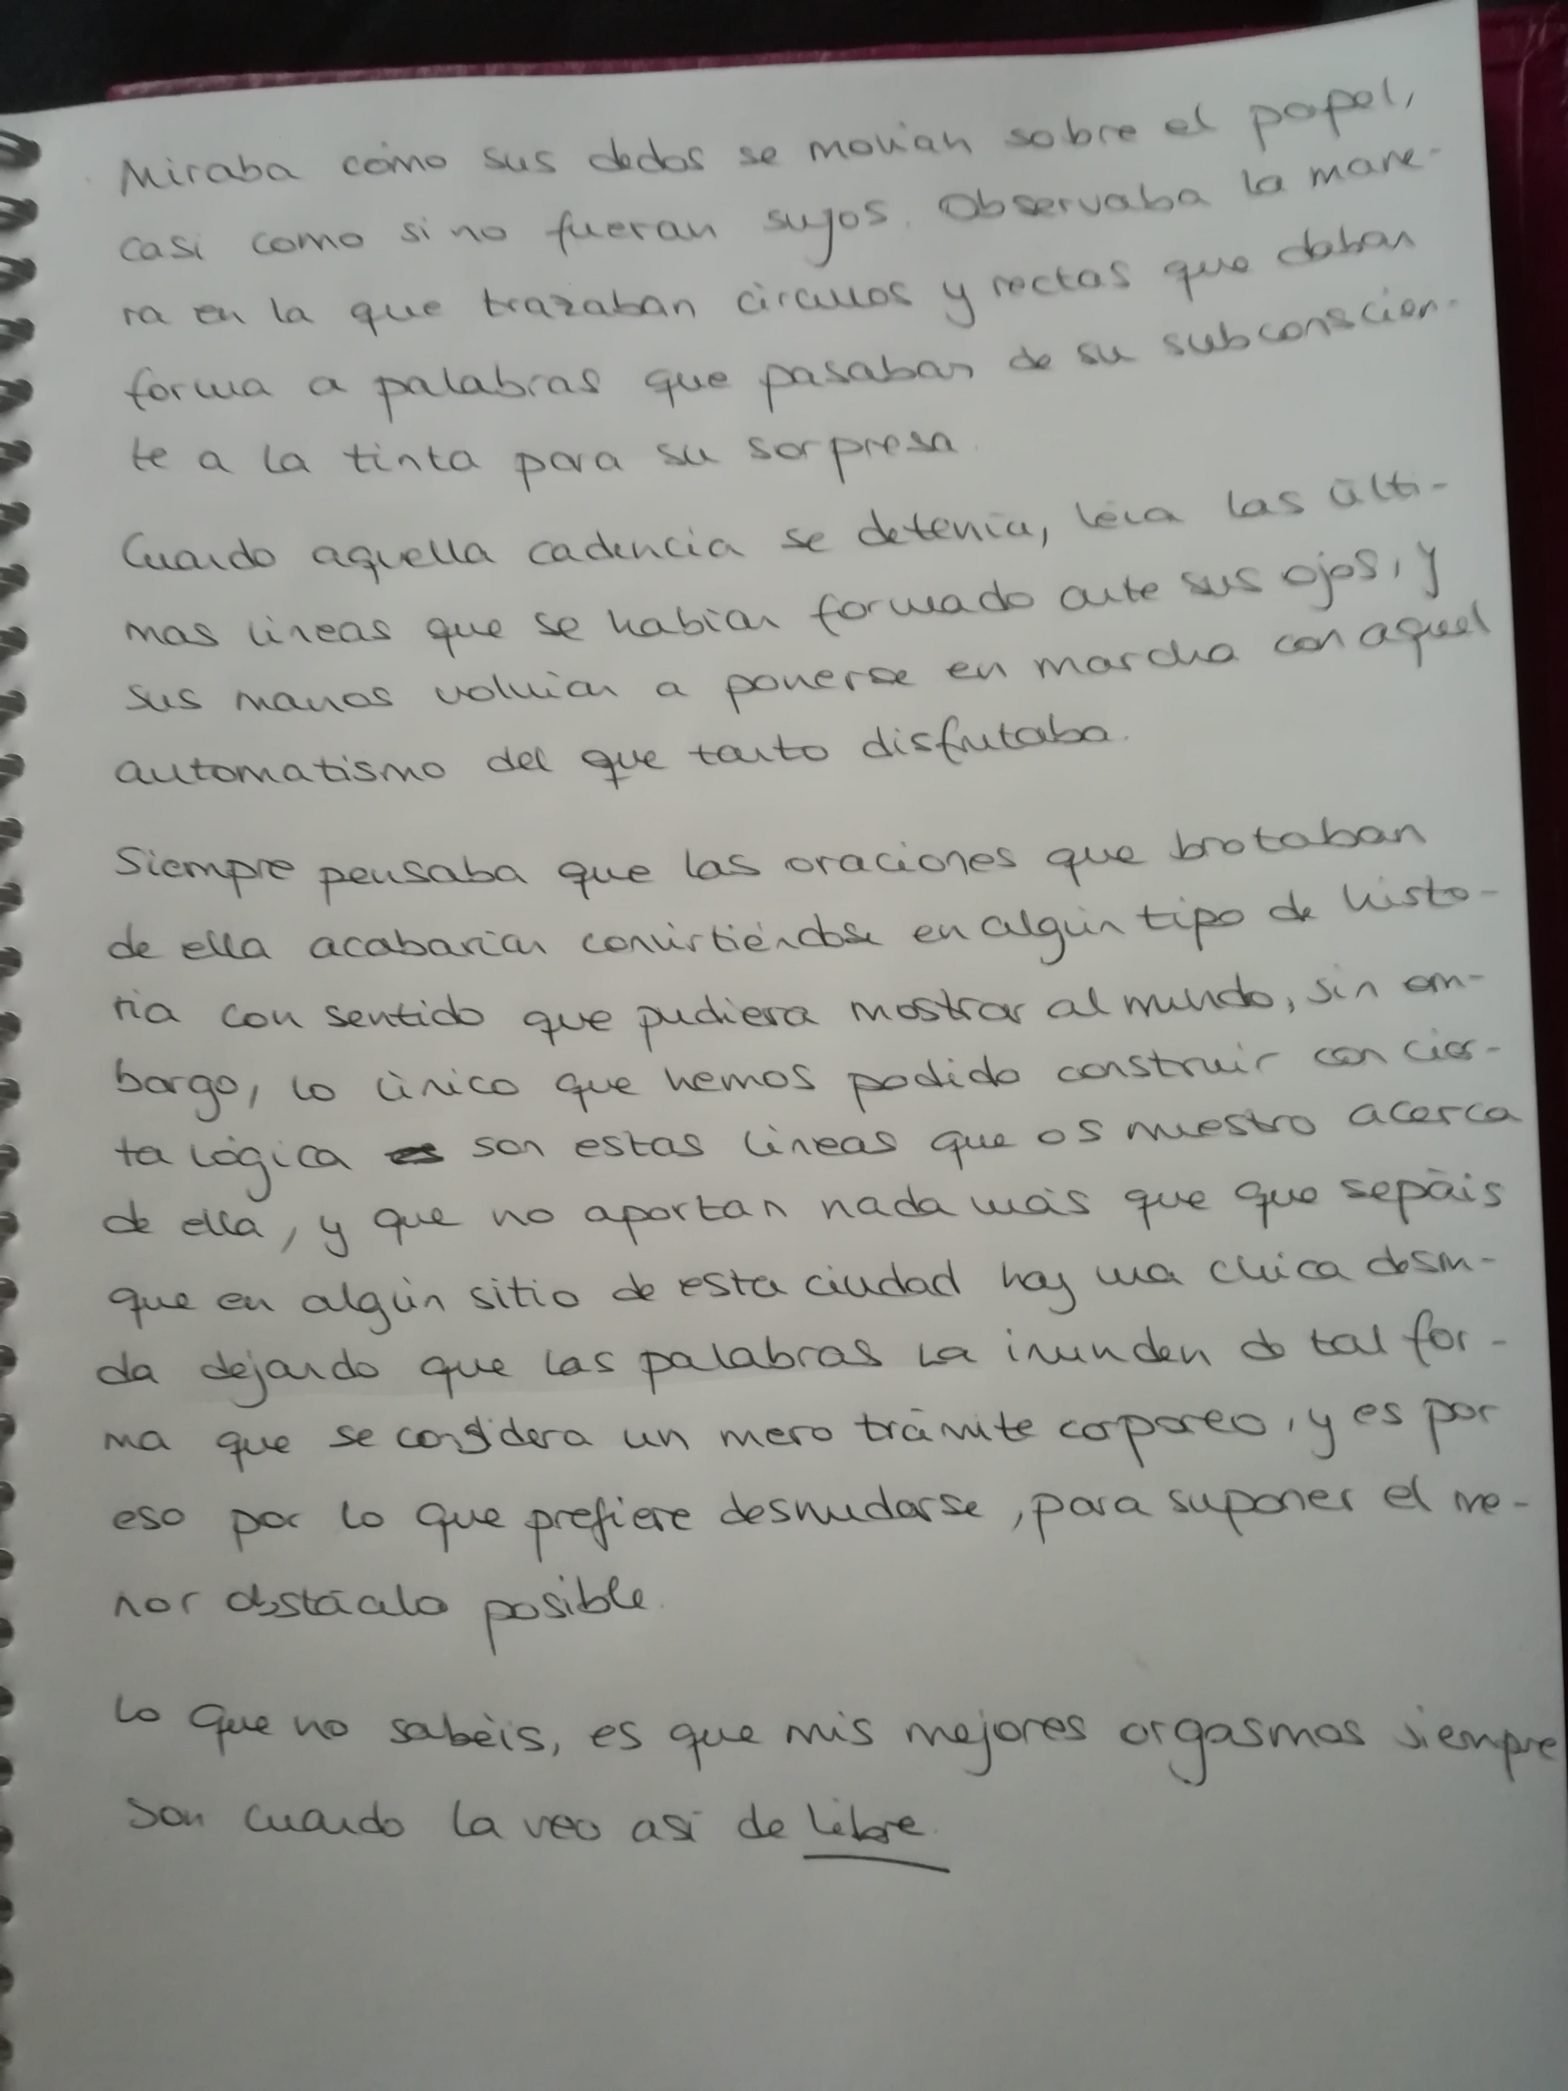 Miraba cómo sus dedos se movían sobre el papel,
casi como si no fueran suyos. Observaba la mane-
ra en la que trazaban círculos y rectas que daban
forma a palabras que pasaban de su subconscien-
te a la tinta para su sorpresa.
Cuando aquella cadencia se detenía, leía las últi-
mas líneas que se habían formado ante sus ojos, y
sus manos volvían a ponerse en marcha con aquel
automatismo del que tanto disfrutaba.
Siempre pensaba que las oraciones que brotaban
de ella acabarían convirtiéndose en algún tipo de histo-
ria con sentido que pudiera mostrar al mundo, sin em-
bargo, lo único que hemos podido construir con cier-
ta lógica son estas líneas que os muestro acerca
de ella, y que no aportan nada más que que sepáis
que en algún sitio de esta ciudad hay una chica desnu-
da dejando que las palabras la inunden de tal for-
ma que se considera un mero trámite corporeo, y es por
eso por lo que prefiere desnudarse, para suponer el me-
nor obstáculo posible.
Lo que no sabéis, es que mis mejores orgasmos siempre
son cuando la veo así de libre.